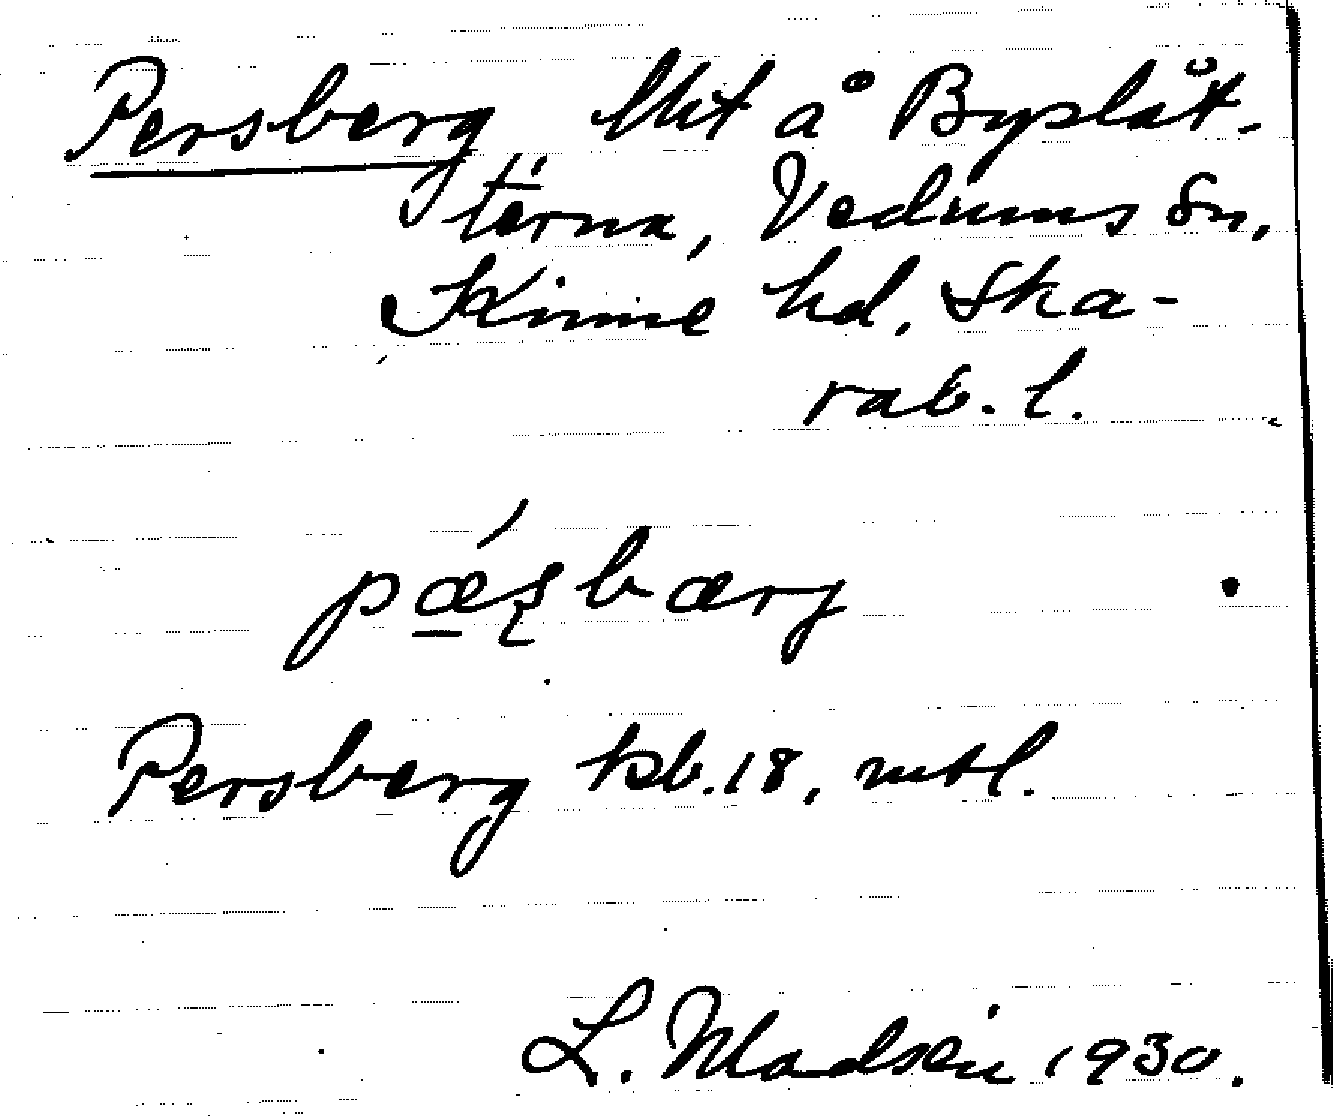 Persberg lht å Byslät-
terna, Vedums sn,
Kinne hd, Ska-
rab. l.
pǽʂbærj
Persberg kb. 18, mtl.
L. Madsén 1930.